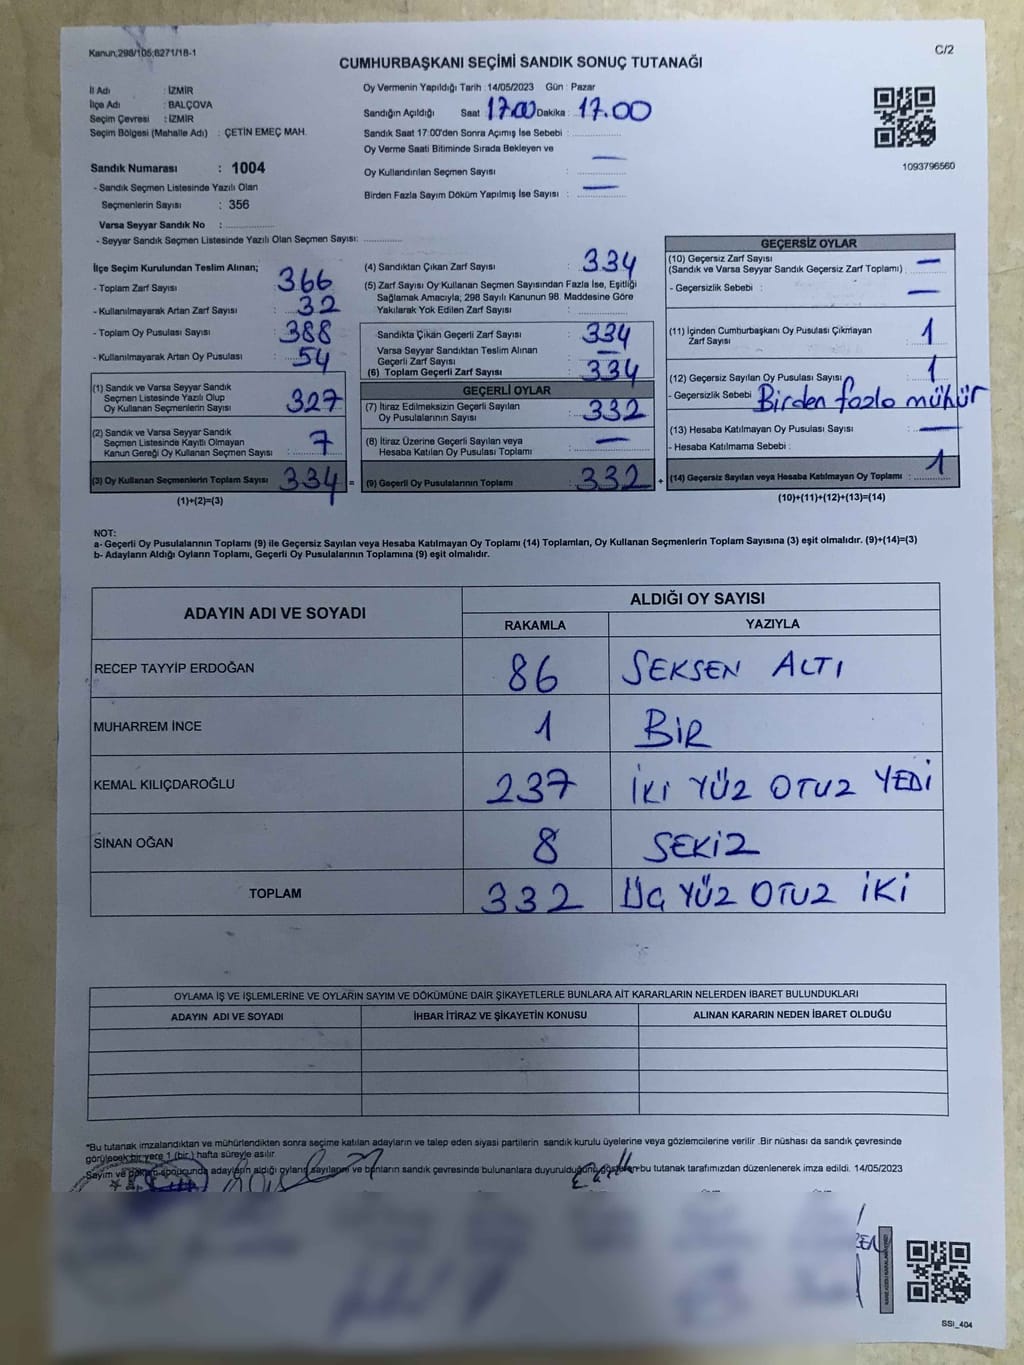 Kanun;298/105;6271/18-1
C/2
CUMHURBAŞKANI SEÇİMİ SANDIK SONUÇ TUTANAĞI
İl Adı : İZMİR
İlçe Adı : BALÇOVA
Seçim Çevresi : İZMİR
Seçim Bölgesi (Mahalle Adı) : ÇETİN EMEÇ MAH.
Oy Vermenin Yapıldığı Tarih : 14/05/2023 Gün : Pazar
Sandığın Açıldığı Saat 17.00 Dakika : 17.00
Sandık Saat 17:00'den Sonra Açımış İse Sebebi :
Oy Verme Saati Bitiminde Sırada Bekleyen ve
Oy Kullandırılan Seçmen Sayısı : —
Birden Fazla Sayım Döküm Yapılmış İse Sayısı : —
1093796560
Sandık Numarası : 1004
- Sandık Seçmen Listesinde Yazılı Olan
Seçmenlerin Sayısı : 356
Varsa Seyyar Sandık No :
- Seyyar Sandık Seçmen Listesinde Yazılı Olan Seçmen Sayısı:
İlçe Seçim Kurulundan Teslim Alınan;
- Toplam Zarf Sayısı : 366
- Kullanılmayarak Artan Zarf Sayısı : 32
- Toplam Oy Pusulası Sayısı : 388
- Kullanılmayarak Artan Oy Pusulası : 54
(1) Sandık ve Varsa Seyyar Sandık
Seçmen Listesinde Yazılı Olup
Oy Kullanan Seçmenlerin Sayısı : 327
(2) Sandık ve Varsa Seyyar Sandık
Seçmen Listesinde Kayıtlı Olmayan
Kanun Gereği Oy Kullanan Seçmen Sayısı : 7
(3) Oy Kullanan Seçmenlerin Toplam Sayısı : 334
(1)+(2)=(3)
(4) Sandıktan Çıkan Zarf Sayısı : 334
(5) Zarf Sayısı Oy Kullanan Seçmen Sayısından Fazla İse, Eşitliği
Sağlamak Amacıyla; 298 Sayılı Kanunun 98. Maddesine Göre
Yakılarak Yok Edilen Zarf Sayısı :
Sandıkta Çıkan Geçerli Zarf Sayısı : 334
Varsa Seyyar Sandıktan Teslim Alınan
Geçerli Zarf Sayısı : —
(6) Toplam Geçerli Zarf Sayısı : 334
GEÇERLİ OYLAR
(7) İtiraz Edilmeksizin Geçerli Sayılan
Oy Pusulalarının Sayısı : 332
(8) İtiraz Üzerine Geçerli Sayılan veya
Hesaba Katılan Oy Pusulası Toplamı : —
= (9) Geçerli Oy Pusulalarının Toplamı : 332
GEÇERSİZ OYLAR
(10) Geçersiz Zarf Sayısı
(Sandık ve Varsa Seyyar Sandık Geçersiz Zarf Toplamı) : —
- Geçersizlik Sebebi : —
(11) İçinden Cumhurbaşkanı Oy Pusulası Çıkmayan
Zarf Sayısı : 1
(12) Geçersiz Sayılan Oy Pusulası Sayısı : 1
- Geçersizlik Sebebi Birden fazla mühür
(13) Hesaba Katılmayan Oy Pusulası Sayısı : —
- Hesaba Katılmama Sebebi :
+ (14) Geçersiz Sayılan veya Hesaba Katılmayan Oy Toplamı : 1
(10)+(11)+(12)+(13)=(14)
NOT:
a- Geçerli Oy Pusulalarının Toplamı (9) ile Geçersiz Sayılan veya Hesaba Katılmayan Oy Toplamı (14) Toplamları, Oy Kullanan Seçmenlerin Toplam Sayısına (3) eşit olmalıdır. (9)+(14)=(3)
b- Adayların Aldığı Oyların Toplamı, Geçerli Oy Pusulalarının Toplamına (9) eşit olmalıdır.
ADAYIN ADI VE SOYADI
ALDIĞI OY SAYISI
RAKAMLA YAZIYLA
RECEP TAYYİP ERDOĞAN 86 SEKSEN ALTI
MUHARREM İNCE 1 BİR
KEMAL KILIÇDAROĞLU 237 İKİ YÜZ OTUZ YEDİ
SİNAN OĞAN 8 SEKİZ
TOPLAM 332 ÜÇ YÜZ OTUZ İKİ
OYLAMA İŞ VE İŞLEMLERİNE VE OYLARIN SAYIM VE DÖKÜMÜNE DAİR ŞİKAYETLERLE BUNLARA AİT KARARLARIN NELERDEN İBARET BULUNDUKLARI
ADAYIN ADI VE SOYADI İHBAR İTİRAZ VE ŞİKAYETİN KONUSU ALINAN KARARIN NEDEN İBARET OLDUĞU
*Bu tutanak imzalandıktan ve mühürlendikten sonra seçime katılan adayların ve talep eden siyasi partilerin sandık kurulu üyelerine veya gözlemcilerine verilir .Bir nüshası da sandık çevresinde
görülecek bir yere 1 (bir ) hafta süreyle asılır.
Sayım ve döküm sonucunda adayların aldığı oyların sayılarını ve bunların sandık çevresinde bulunanlara duyurulduğunu gösteren bu tutanak tarafımızdan düzenlenerek imza edildi. 14/05/2023
SSI_404